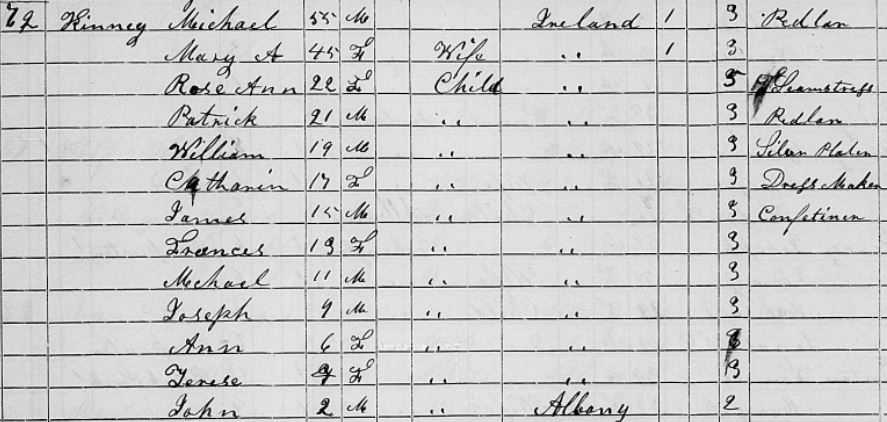 72 Kinney Michael 55 M Ireland 1 3 Pedlar
Mary A 45 F Wife " 1 3
Rose Ann 22 F Child " 5 Seamstress
Patrick 21 M " " 3 Pedlar
William 19 M " " 3 Silver Plater
Catharin 17 F " " 3 Dress Maker
James 15 M " " 3 Confetiner
Frances 13 F " " 3
Michael 11 M " " 3
Joseph 9 M " " 3
Ann 6 F " "
Terese F " " 3
John 2 M " Albany 2